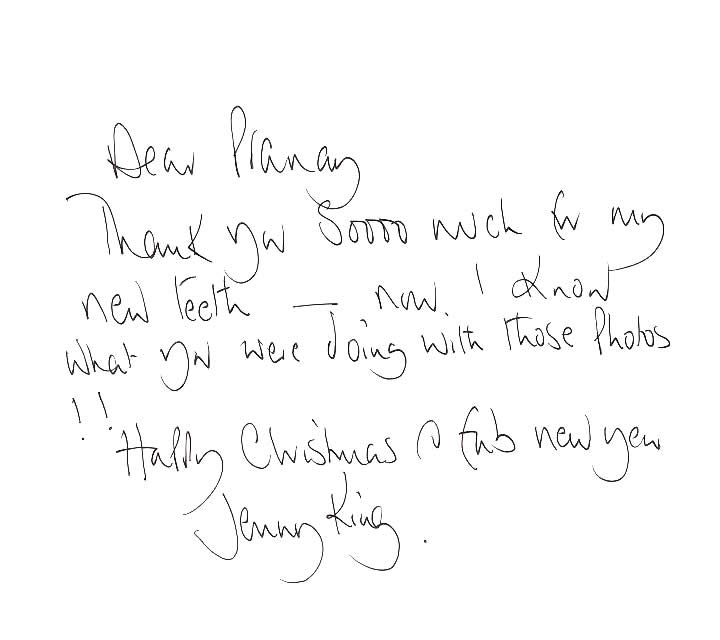 Dear Pranay
Thank you Soooo much for my
new Teeth — now. I know
what you were doing with those Photos
!!
Happy Christmas & fab new year
Jenny King.